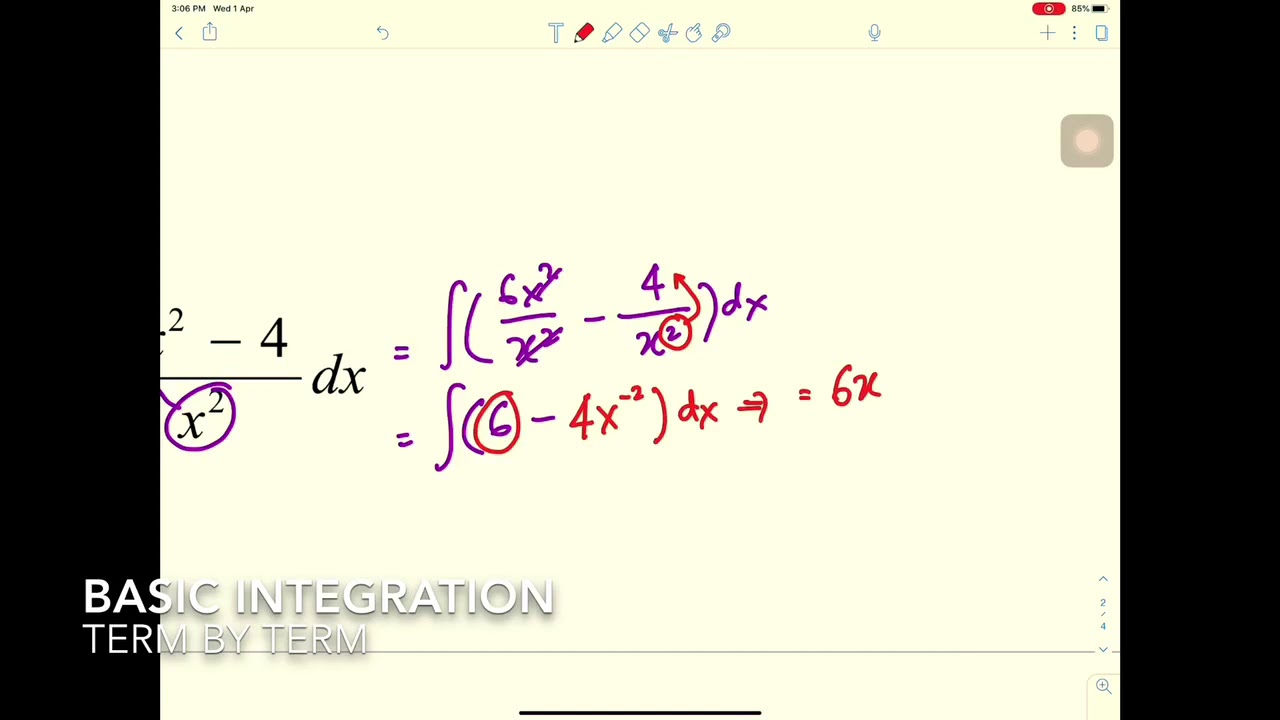 3:06 PM Wed 1 Apr
85%
T
= ∫(6x²/x² − 4/x²)dx
² − 4
x² dx
= ∫(6 − 4x⁻²)dx ⇒ = 6x
BASIC INTEGRATION
TERM BY TERM
2
/
4